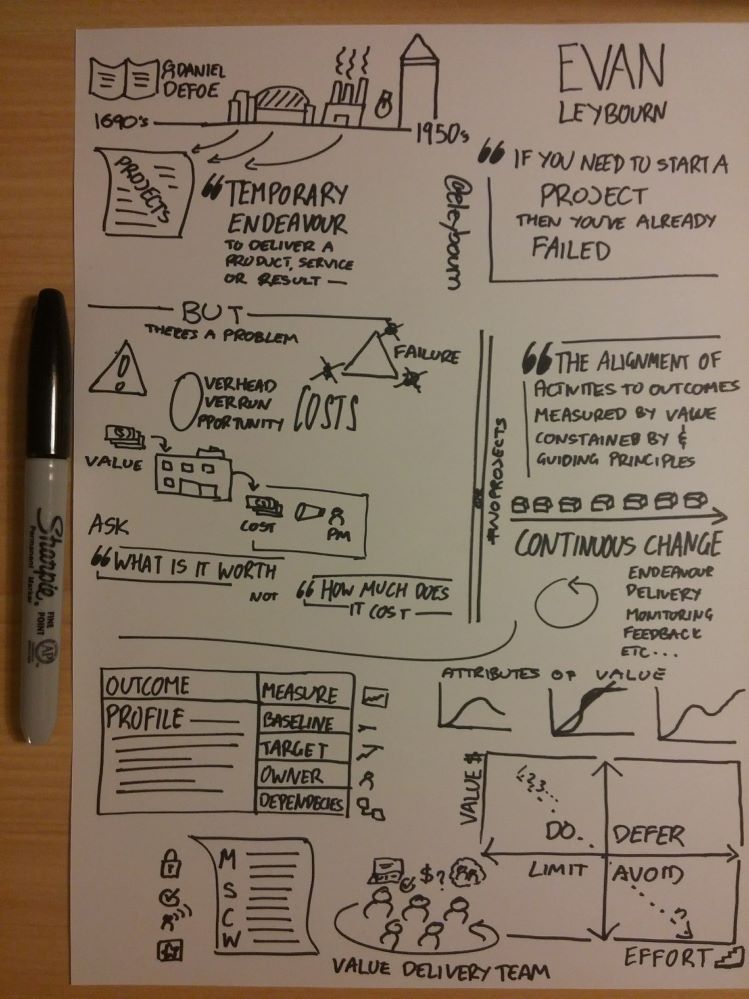 DANIEL
DEFOE
1690's
1950s
EVAN
LEYBOURN
@eleybourn
PROJECTS
“TEMPORARY
ENDEAVOUR
TO DELIVER A
PRODUCT, SERVICE
OR RESULT —
“ IF YOU NEED TO START A
PROJECT
THEN YOU'VE ALREADY
FAILED
BUT
THERE'S A PROBLEM
FAILURE
OVERHEAD
OVERRUN
OPPORTUNITY
COSTS
VALUE
COST
PM
ASK
“WHAT IS IT WORTH
NOT
“HOW MUCH DOES
IT COST —
#NOPROJECTS
“THE ALIGNMENT OF
ACTIVITIES TO OUTCOMES
MEASURED BY VALUE
CONSTAINED BY &
GUIDING PRINCIPLES
CONTINUOUS CHANGE
ENDEAVOUR
DELIVERY
MONITORING
FEEDBACK
ETC...
OUTCOME
PROFILE
MEASURE
BASELINE
TARGET
OWNER
DEPENDECIES
ATTRIBUTES OF VALUE
VALUE $
1,2,3...
DO
DEFER
LIMIT
AVOID
EFFORT
M
S
C
W
$?
VALUE DELIVERY TEAM
Sharpie.
Permanent Marker
FINE
POINT
AP